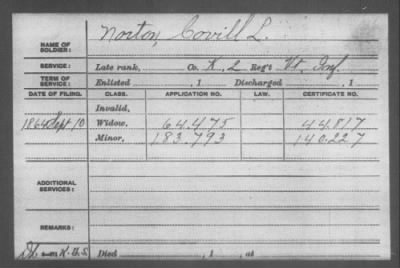 NAME OF SOLDIER: Norton, Covill L.
SERVICE: Late rank, Co. K, L Reg't Vt. Inf.
TERM OF SERVICE: Enlisted , 1 Discharged , 1
DATE OF FILING. CLASS. APPLICATION NO. LAW. CERTIFICATE NO.
Invalid,
1864 Sept 10 Widow, 64.475 44.817
Minor, 183.793 140.227
ADDITIONAL SERVICES:
REMARKS:
K. U.S. Died , 1 , at